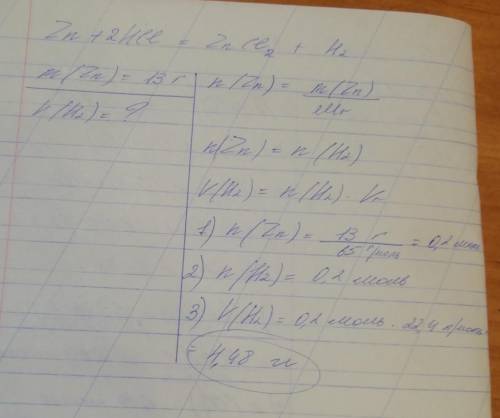 Zn + 2HCl = ZnCl₂ + H₂
m(Zn) = 13 г
V(H₂) = ?
n(Zn) = m(Zn) / Mr
n(Zn) = n(H₂)
V(H₂) = n(H₂) · Vm
1) n(Zn) = 13 г / 65 г/моль = 0,2 моль
2) n(H₂) = 0,2 моль
3) V(H₂) = 0,2 моль · 22,4 л/моль
= 4,48 л